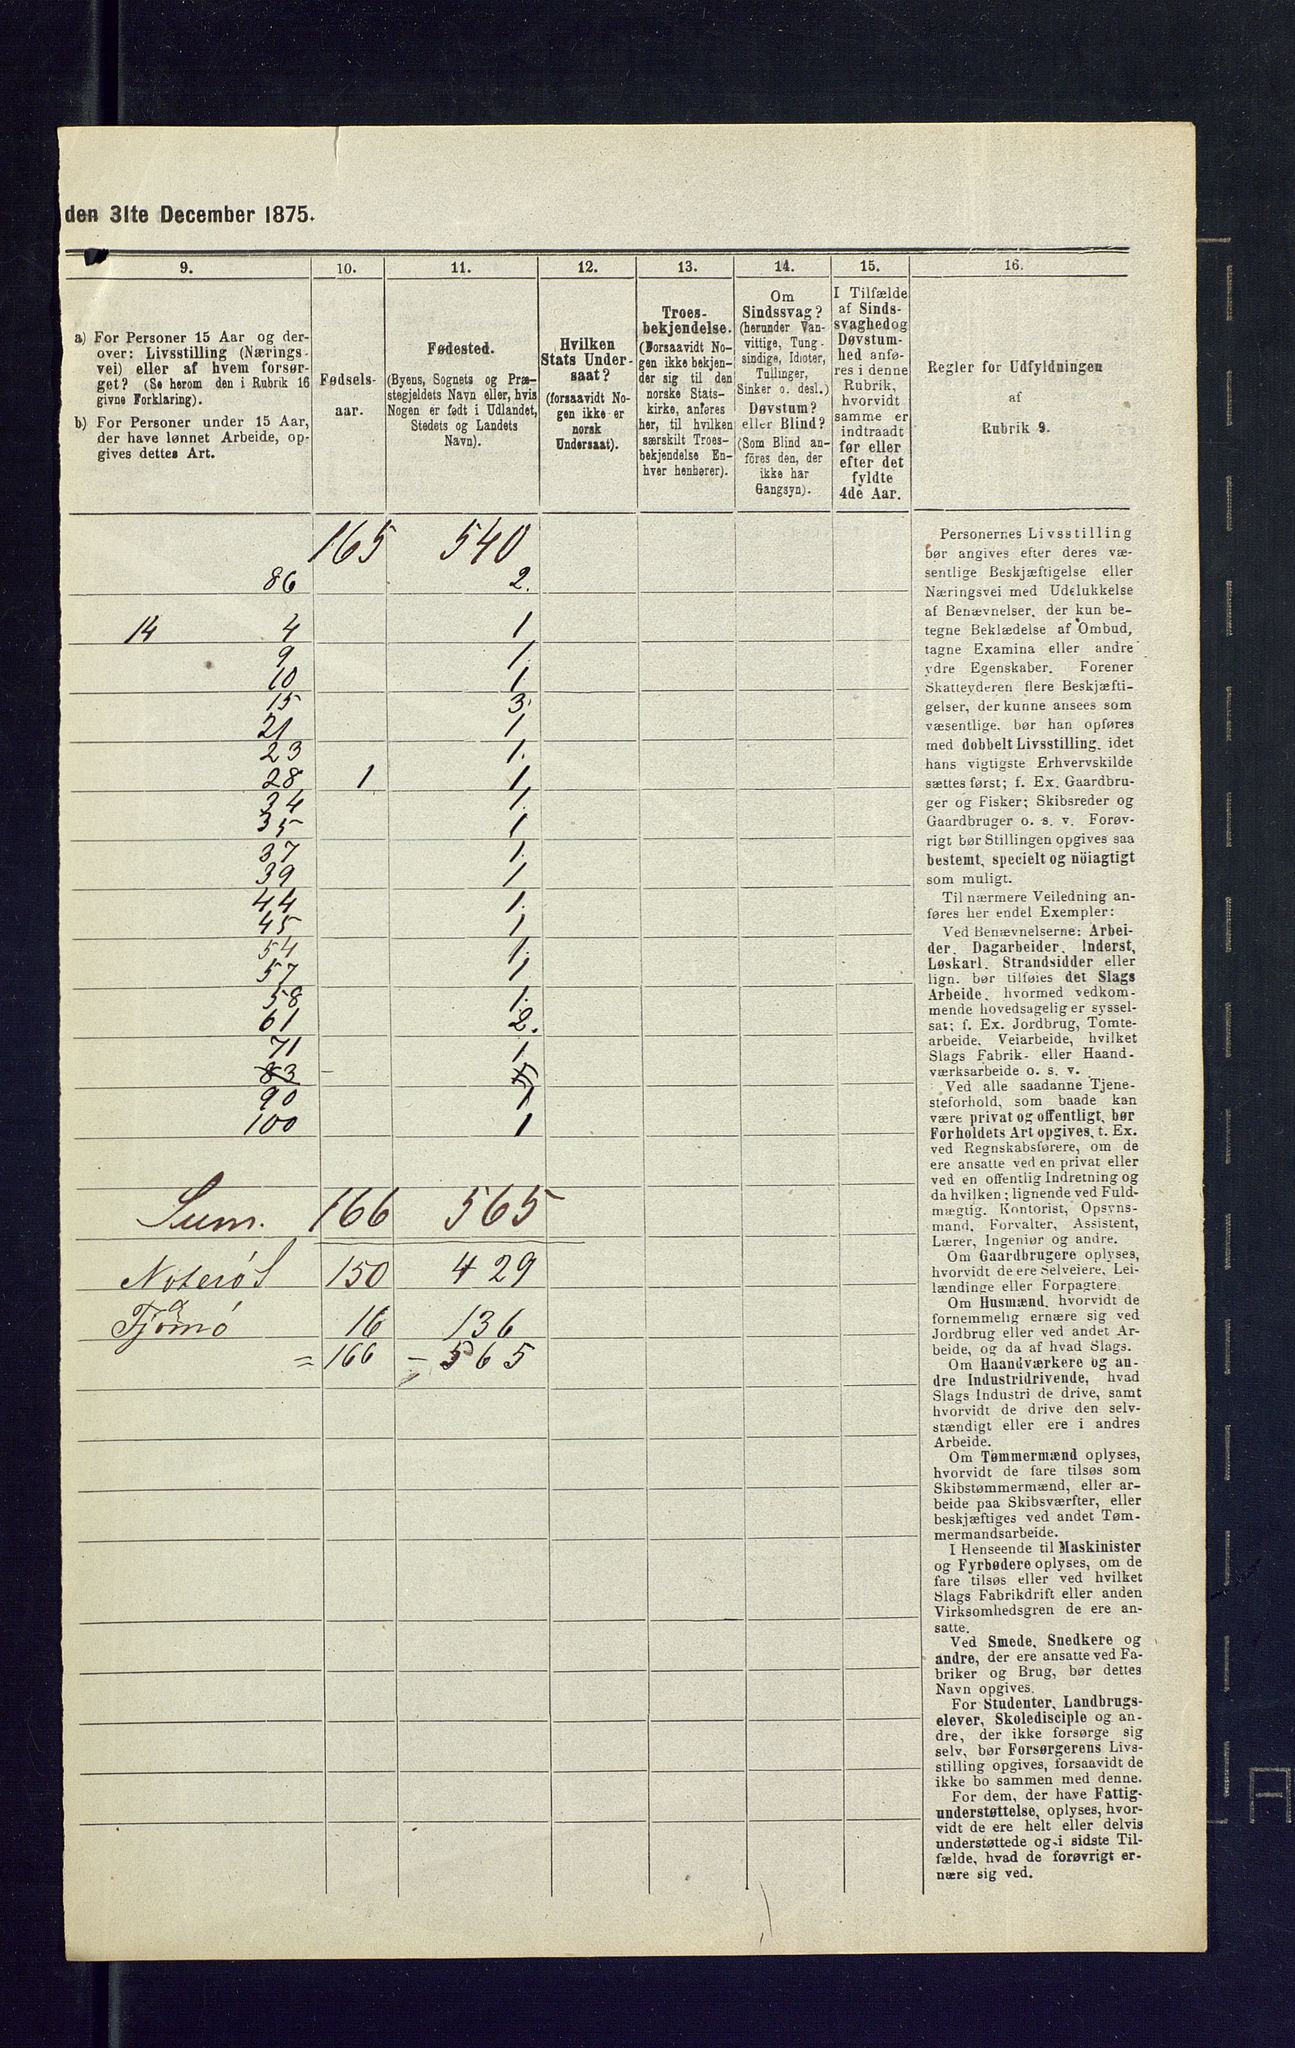 den 31te December 1875.
9. 10. 11. 12. 13. 14. 15. 16.
a) For Personer 15 Aar og der-
over: Livsstilling (Nærings-
vei) eller af hvem forsør-
get? (Se herom den i Rubrik 16
givne Forklaring).
b) For Personer under 15 Aar,
der have lønnet Arbeide, op-
gives dettes Art.
Fødsels-
aar.
Fødested.
(Byens, Sognets og Præ-
stegjeldets Navn eller, hvis
Nogen er født i Udlandet,
Stedets og Landets
Navn).
Hvilken
Stats Under-
saat?
(forsaavidt No-
gen ikke er
norsk
Undersaat).
Troes-
bekjendelse.
(Forsaavidt No-
gen ikke bekjen-
der sig til den
norske Stats-
kirke, anføres
her, til hvilken
særskilt Troes-
bekjendelse En-
hver henhører).
Om
Sindssvag?
(herunder Van-
vittige, Tung-
sindige, Idioter,
Tullinger,
Sinker o. desl.)
Døvstum?
eller Blind?
(Som Blind an-
föres den, der
ikke har
Gangsyn).
I Tilfælde
af Sinds-
svaghed og
Døvstum-
hed anfø-
res i denne
Rubrik,
hvorvidt
samme er
indtraadt
før eller
efter det
fyldte
4de Aar.
Regler for Udfyldningen
af
Rubrik 9.
165 540
86 2.
14 4 1
9 1.
10 1.
15 3.
21 1
23 1.
28 1 1
34 1.
35 1
37 1.
39 1
44 1.
45 1
54 1.
57 1
58 1.
61 2.
71 1
83
90 1
100 1
Sum. 166 565
Noterö 150 429
Tjömö 16 136
= 166 – 565
Personernes Livsstilling
bør angives efter deres væ-
sentlige Beskjæftigelse eller
Næringsvei med Udelukkelse
af Benævnelser, der kun be-
tegne Beklædelse af Ombud,
tagne Examina eller andre
ydre Egenskaber. Forener
Skatteyderen flere Beskjæfti-
gelser, der kunne ansees som
væsentlige, bør han opføres
med dobbelt Livsstilling, idet
hans vigtigste Erhvervskilde
sættes først; f. Ex. Gaardbru-
ger og Fisker; Skibsreder og
Gaardbruger o. s. v. Forøv-
rigt bør Stillingen opgives saa
bestemt, specielt og nöiagtigt
som muligt.
Til nærmere Veiledning an-
føres her endel Exempler:
Ved Benævnelserne: Arbei-
der, Dagarbeider, Inderst,
Løskarl, Strandsidder eller
lign. bør tilføies det Slags
Arbeide, hvormed vedkom-
mende hovedsagelig er syssel-
sat; f. Ex. Jordbrug, Tomte-
arbeide, Veiarbeide, hvilket
Slags Fabrik- eller Haand-
værksarbeide o. s. v.
Ved alle saadanne Tjene-
steforhold, som baade kan
være privat og offentligt, bør
Forholdets Art opgives, t. Ex.
ved Regnskabsførere, om de
ere ansatte ved en privat eller
ved en offentlig Indretning og
da hvilken; lignende ved Fuld-
mægtig. Kontorist, Opsyns-
mand, Forvalter, Assistent,
Lærer, Ingeniør og andre.
Om Gaardbrugere oplyses,
hvorvidt de ere Selveiere, Lei-
lændinge eller Forpagtere.
Om Husmænd, hvorvidt de
fornemmelig ernære sig ved
Jordbrug eller ved andet Ar-
beide, og da af hvad Slags.
Om Haandværkere og an-
dre Industridrivende, hvad
Slags Industri de drive, samt
hvorvidt de drive den selv-
stændigt eller ere i andres
Arbeide.
Om Tømmermænd oplyses,
hvorvidt de fare tilsøs som
Skibstømmermænd, eller ar-
beide paa Skibsværfter, eller
beskjæftiges ved andet Tøm-
mermandsarbeide.
I Henseende til Maskinister
og Fyrbødere oplyses, om de
fare tilsøs eller ved hvilket
Slags Fabrikdrift eller anden
Virksomhedsgren de ere an-
satte.
Ved Smede, Snedkere og
andre, der ere ansatte ved Fa-
briker og Brug, bør dettes
Navn opgives.
For Studenter, Landbrugs-
elever, Skoledisciple og an-
dre, der ikke forsørge sig
selv, bør Forsørgerens Livs-
stilling opgives, forsaavidt de
ikke bo sammen med denne.
For dem, der have Fattig-
understøttelse, oplyses, hvor-
vidt de ere helt eller delvis
understøttede og i sidste Til-
fælde, hvad de forøvrigt er-
nære sig ved.